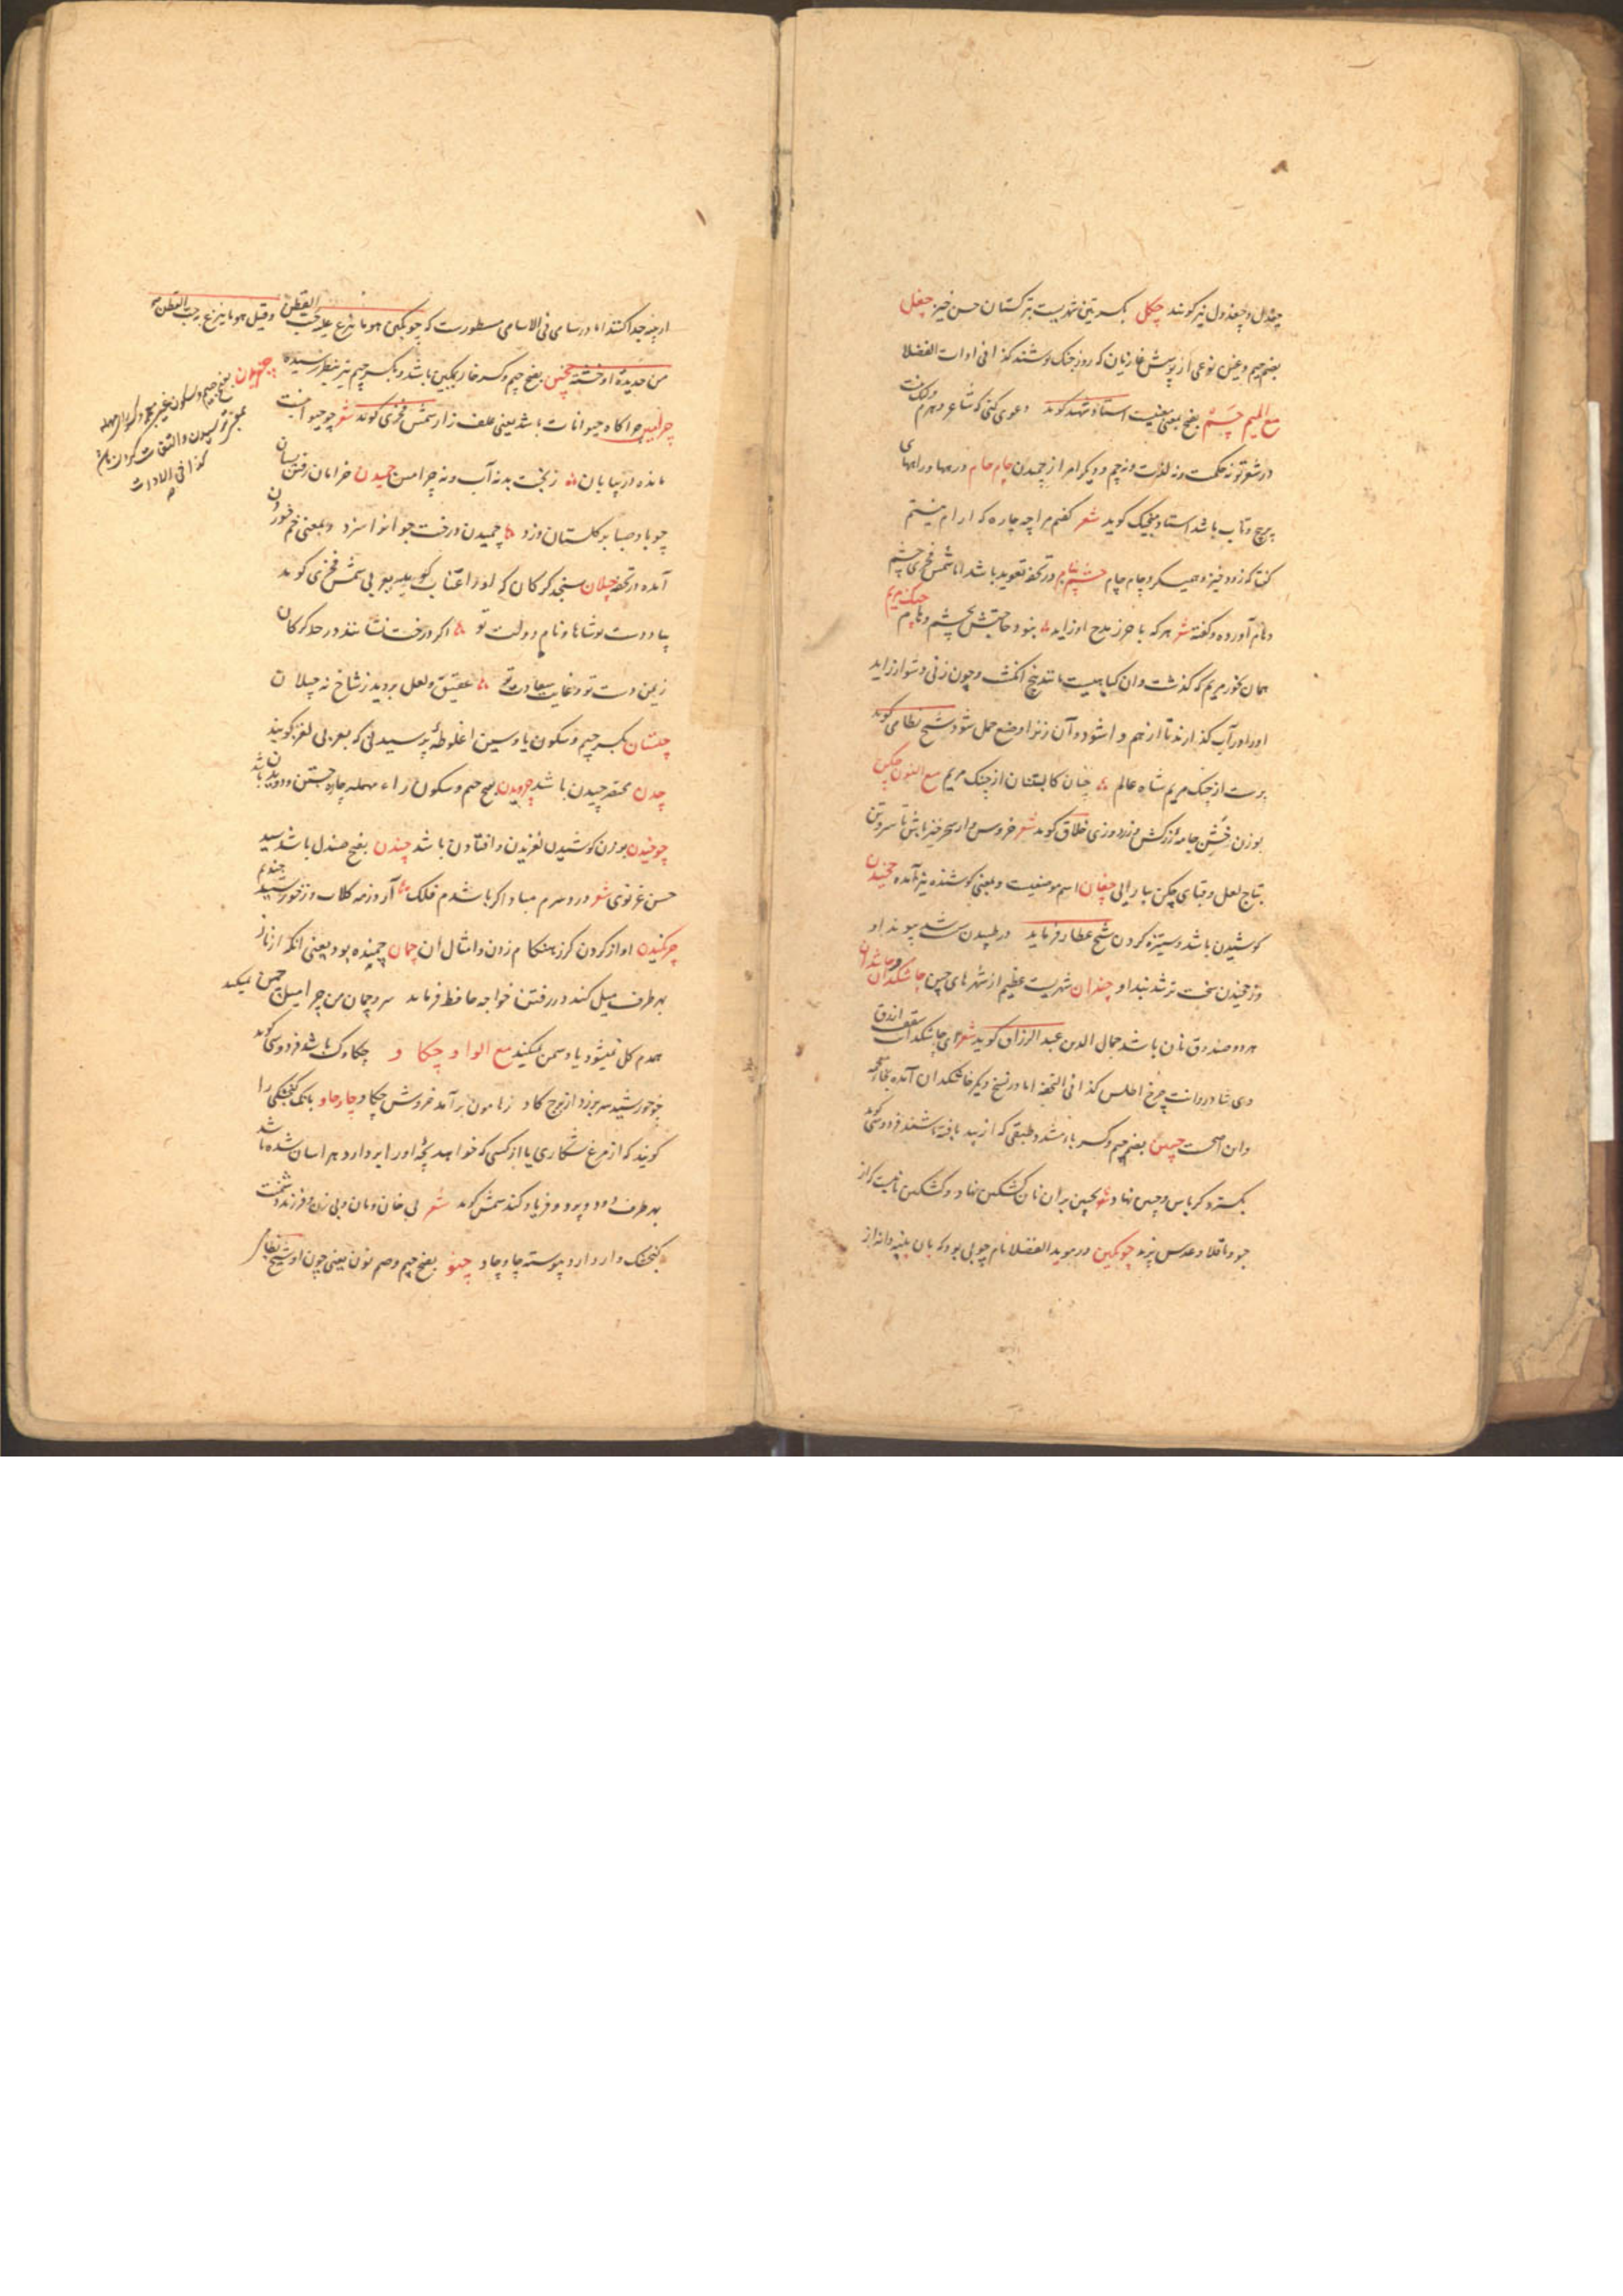 چغدل و چغندول نیز گویند چگل بکسرتین شهریست بترکستان حسن خیز چغل
بضم جیم و غین نوعی از پوشش غازیان که روز جنک پوشند کذا فی ادات الفضلا
مع المیم چشم بفتح بمعنی استاد شهید گوید دعوی کنی که شاعر دهرم ولیک نیست
در شعر تو نه حکمت و نه لذت و نه چم و دیگر امر از چمیدن چام چام درمها و راههای
پرپیچ و تاب باشد استاد منجیک گوید شعر گفتم مرا چه چاره که آرام نیستم
گفتا که زود خیز و همیگرد چام چام چشم پنام در تحفه تعوید باشد اما شمس فخری چشم
و هام آورده و گفته شعر هرکه با حرز مدح او زاید نبود حاجتش بچشم و هام چنگ مریم
همان بخور مریم که گذشت و آن گیاهیست مانند پنج انگشت و چون زنی دشوار زاید
او را در آب گذارند تا از هم وا شود و آن زنرا وضع حمل شود شیخ نظامی گوید
برست از چنک مریم شاه عالم چنان کابستنان از چنک مریم مع النون چکین
بوزن جامه زرکش و زردوزی خلاق گوید شعر خروس وار سحر خیز باش تا سر و تن
بتاج لعل و قبای چکن بیارایی چغان اسم موضعیست و بمعنی کوشنده نیز آمده چخیدن
کوشیدن باشد و ستیزه کردن شیخ عطار فرماید در طپیدن سست شد پیوند او
وز چخیدن سخت تر شد بند او چندان شهریست عظیم از شهرهای چین چاشکدان و چاشدان
هر دو صندوق نان باشد جمال الدین عبد الرزاق گوید شعر ای چاشکدانت سقف ازرق
وی شادروانت چرخ اطلس کذا فی التحفه اما در نسخ دیگر خاشکدان آمده بخاء معجمه
و این اصحست چپین بضم جیم و کسر باء باشد و طبقی که از بید بافته باشند فردوسی گوید
بگسترد کرباس و چپین نهاد بچپین بر آن نان کشکین نهاد و کشکین نانیست که از
جو و باقلا و عدس پزند چوبکین در موید الفضلا نام چوبی بود که بآن پنبه دانه از
او پنبه جدا کنند اما در سامی فی الاسامی مسطورست که چوبکین هو ما ینزع علیه حب القطن و قیل هو ما ینزع به حب القطن
من حدیدة او خشبة چخین بفتح جیم و کسر خا باشد و بکسر جیم نیز بنظر رسیده
چرامین چراگاه حیوانات باشد یعنی علف زار شمس فخری گوید شعر چو حیوانیست
مانده در بیابان ز بختت بد نه آب و نه چرامین چمیدن خرامان رفتن بسان
چو باد صبا بر گلستان وزد چمیدن درخت جوانرا سزد و بمعنی خم خوردن
آمده در تحفه چیلان سنجد گرگان که او را عناب گویند بعربی شمس فخری گوید
بیاد دست تو شاها و نام دولت تو اگر درخت نشانند در حد گرگان
ز یمن دست تو و غایت سعادت تو عقیق و لعل بروید ز شاخ نه چیلان
چیستان بکسر جیم و سکون یا و سین اغلوطه پرسیدنی که بعربی لغز گویند
چدن مختصر چیدن باشد چرویدن بفتح جیم و سکون راء مهمله چاره جستن و دویدن باشد
چوخیدن بوزن کوشیدن لغزیدن و افتادن باشد چندن بفتح صندل باشد سید
حسن غزنوی شعر درد سرم مباد اگر باشدم فلک آرد ز مه گلاب و ز خورشید چندنم
چرکیدن آواز کردن گرز هنگام زدن و امثال آن چمان چمنده بود یعنی آنکه از ناز
بهر طرف میل کند در رفتن خواجه حافظ فرماید سرو چمان من چرا میل چمن نمیکند
همدم گل نمیشود یاد سمن نمیکند مع الواو چکاو چکاوک باشد فردوسی گوید
چو خورشید سر برزد از برج گاو ز هامون برآمد خروش چکاو چاوچاو بانک گنجشکی را
گویند که از مرغ شکاری یا از کسی که خواهد بچه او را بردارد هراسان شده باشد
بهر طرف دود و پرد و فریاد کند شمس گوید شعر بی خان و مان و بی زن و فرزند
گنجشک وار دارد پیوسته چاوچاو چنو بفتح جیم و ضم نون یعنی چون او شیخ نظامی
بفتح جیم و سکون غین معجمه
کذا فی الادات